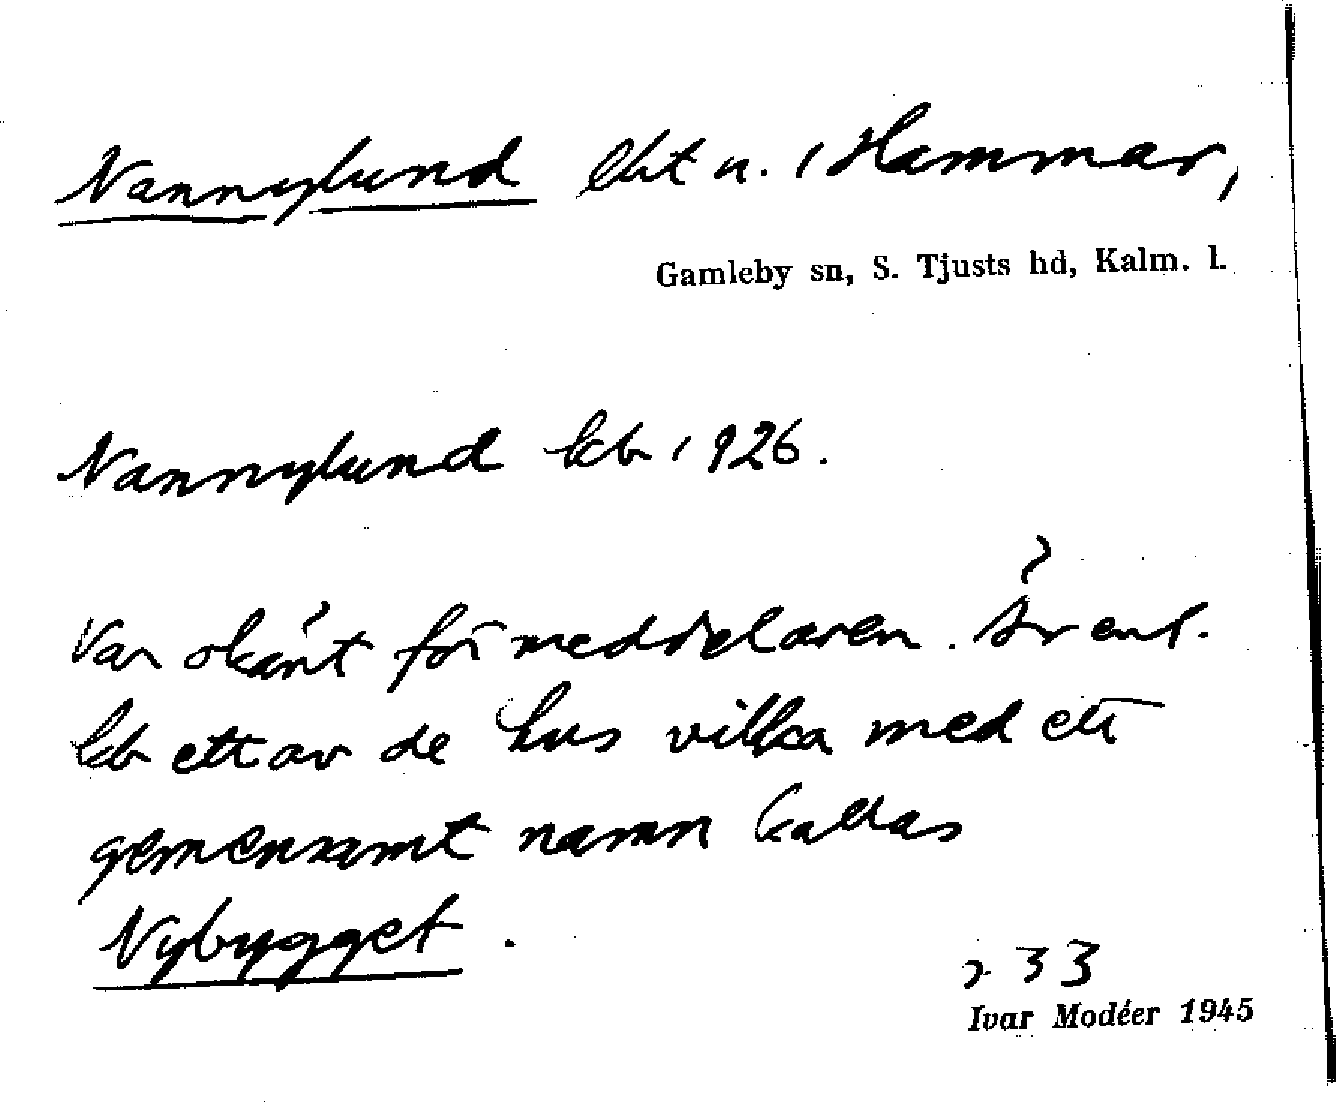 Nannylund lht u. i Hammar,
Gamleby sn, S. Tjusts hd, Kalm. l.
Nannylund kb 1926.
Var okänt för meddelaren. Är enl.
kb ett av de hus vilka med ett
gemensamt namn kallas
Nybygget.
33
Ivar Modéer 1945